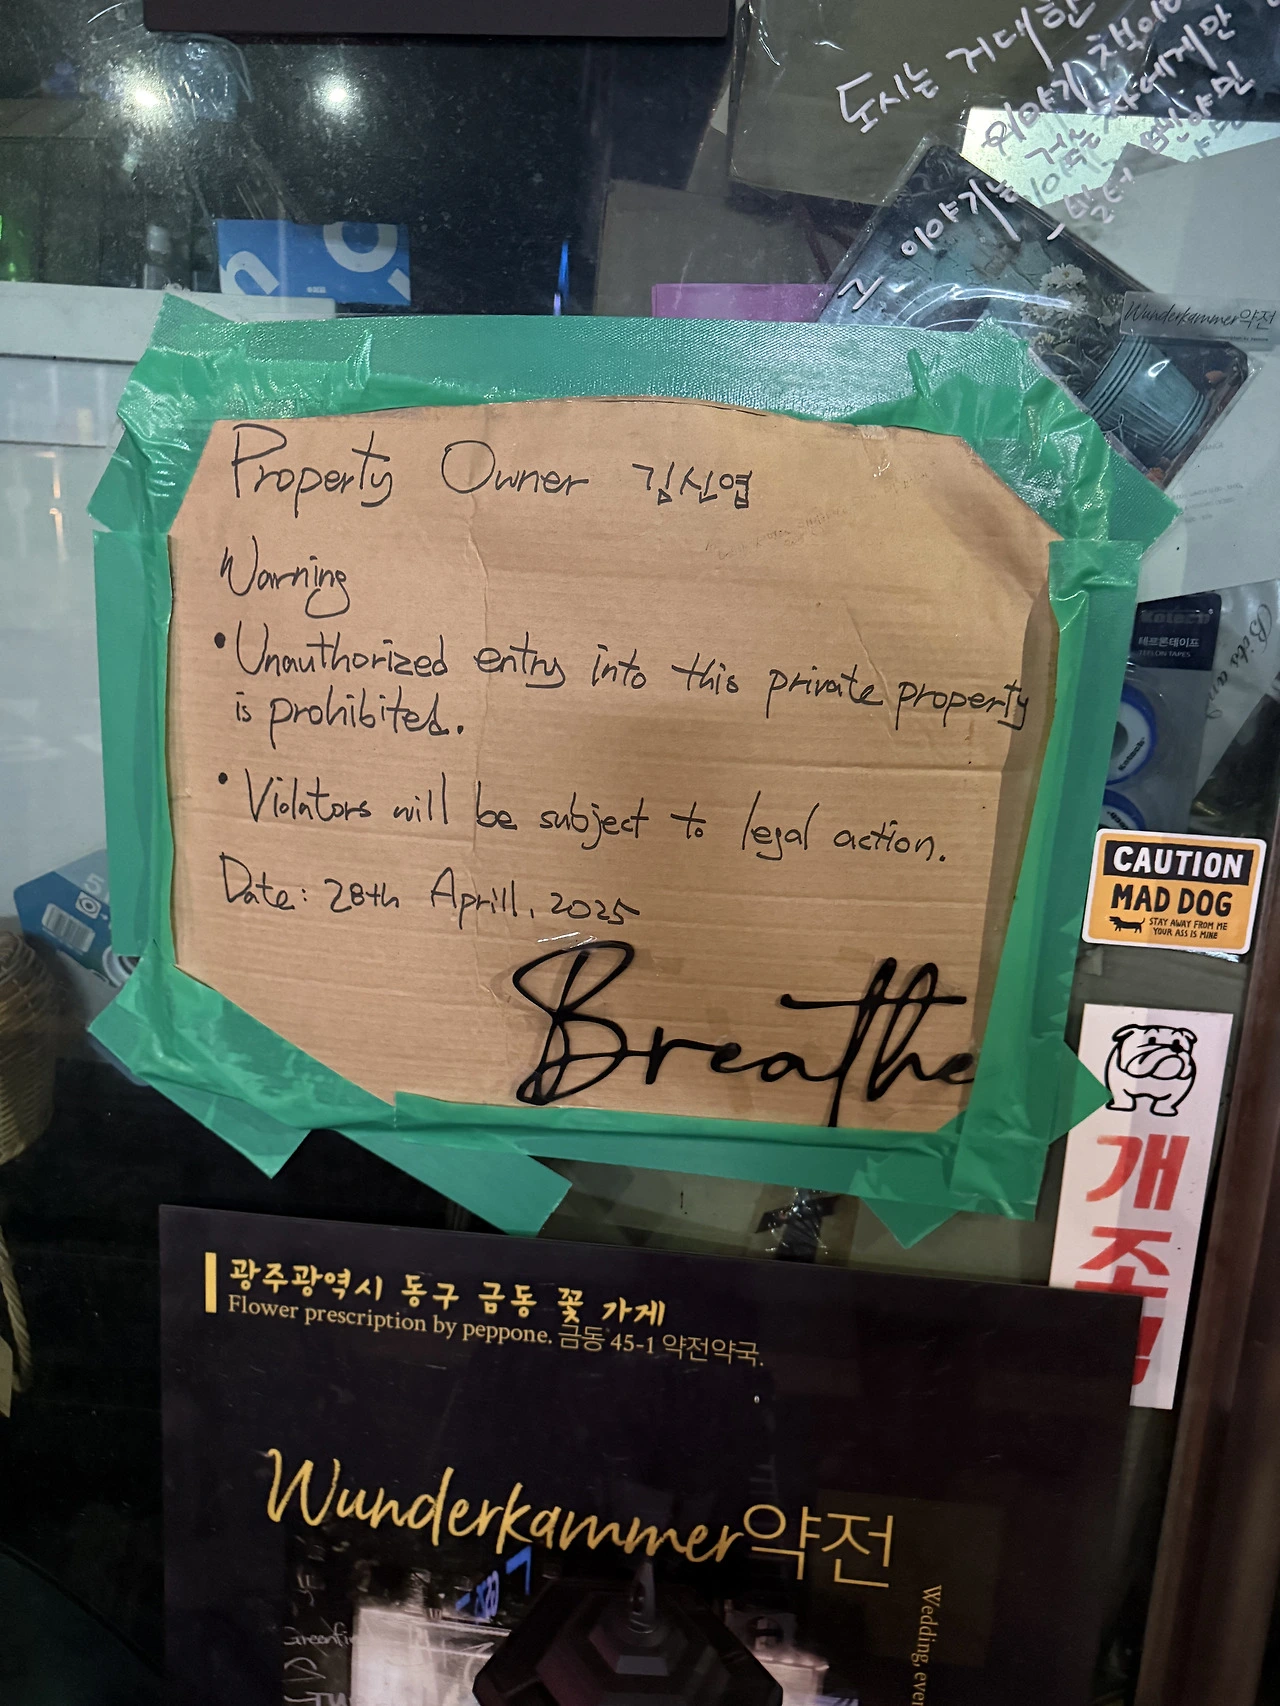 도시는 거대한
이야기 책이다
이야기는
Wunderkammer약전
Property Owner 김신엽
Warning
• Unauthorized entry into this private property
is prohibited.
• Violators will be subject to legal action.
Date: 28th Aprill, 2025
Breathe
테프론테이프
TEFLON TAPES
CAUTION
MAD DOG
STAY AWAY FROM ME
YOUR ASS IS MINE
개
조
심
광주광역시 동구 금동 꽃 가게
Flower prescription by peppone. 금동 45-1 약전약국.
Wunderkammer약전
Wedding,